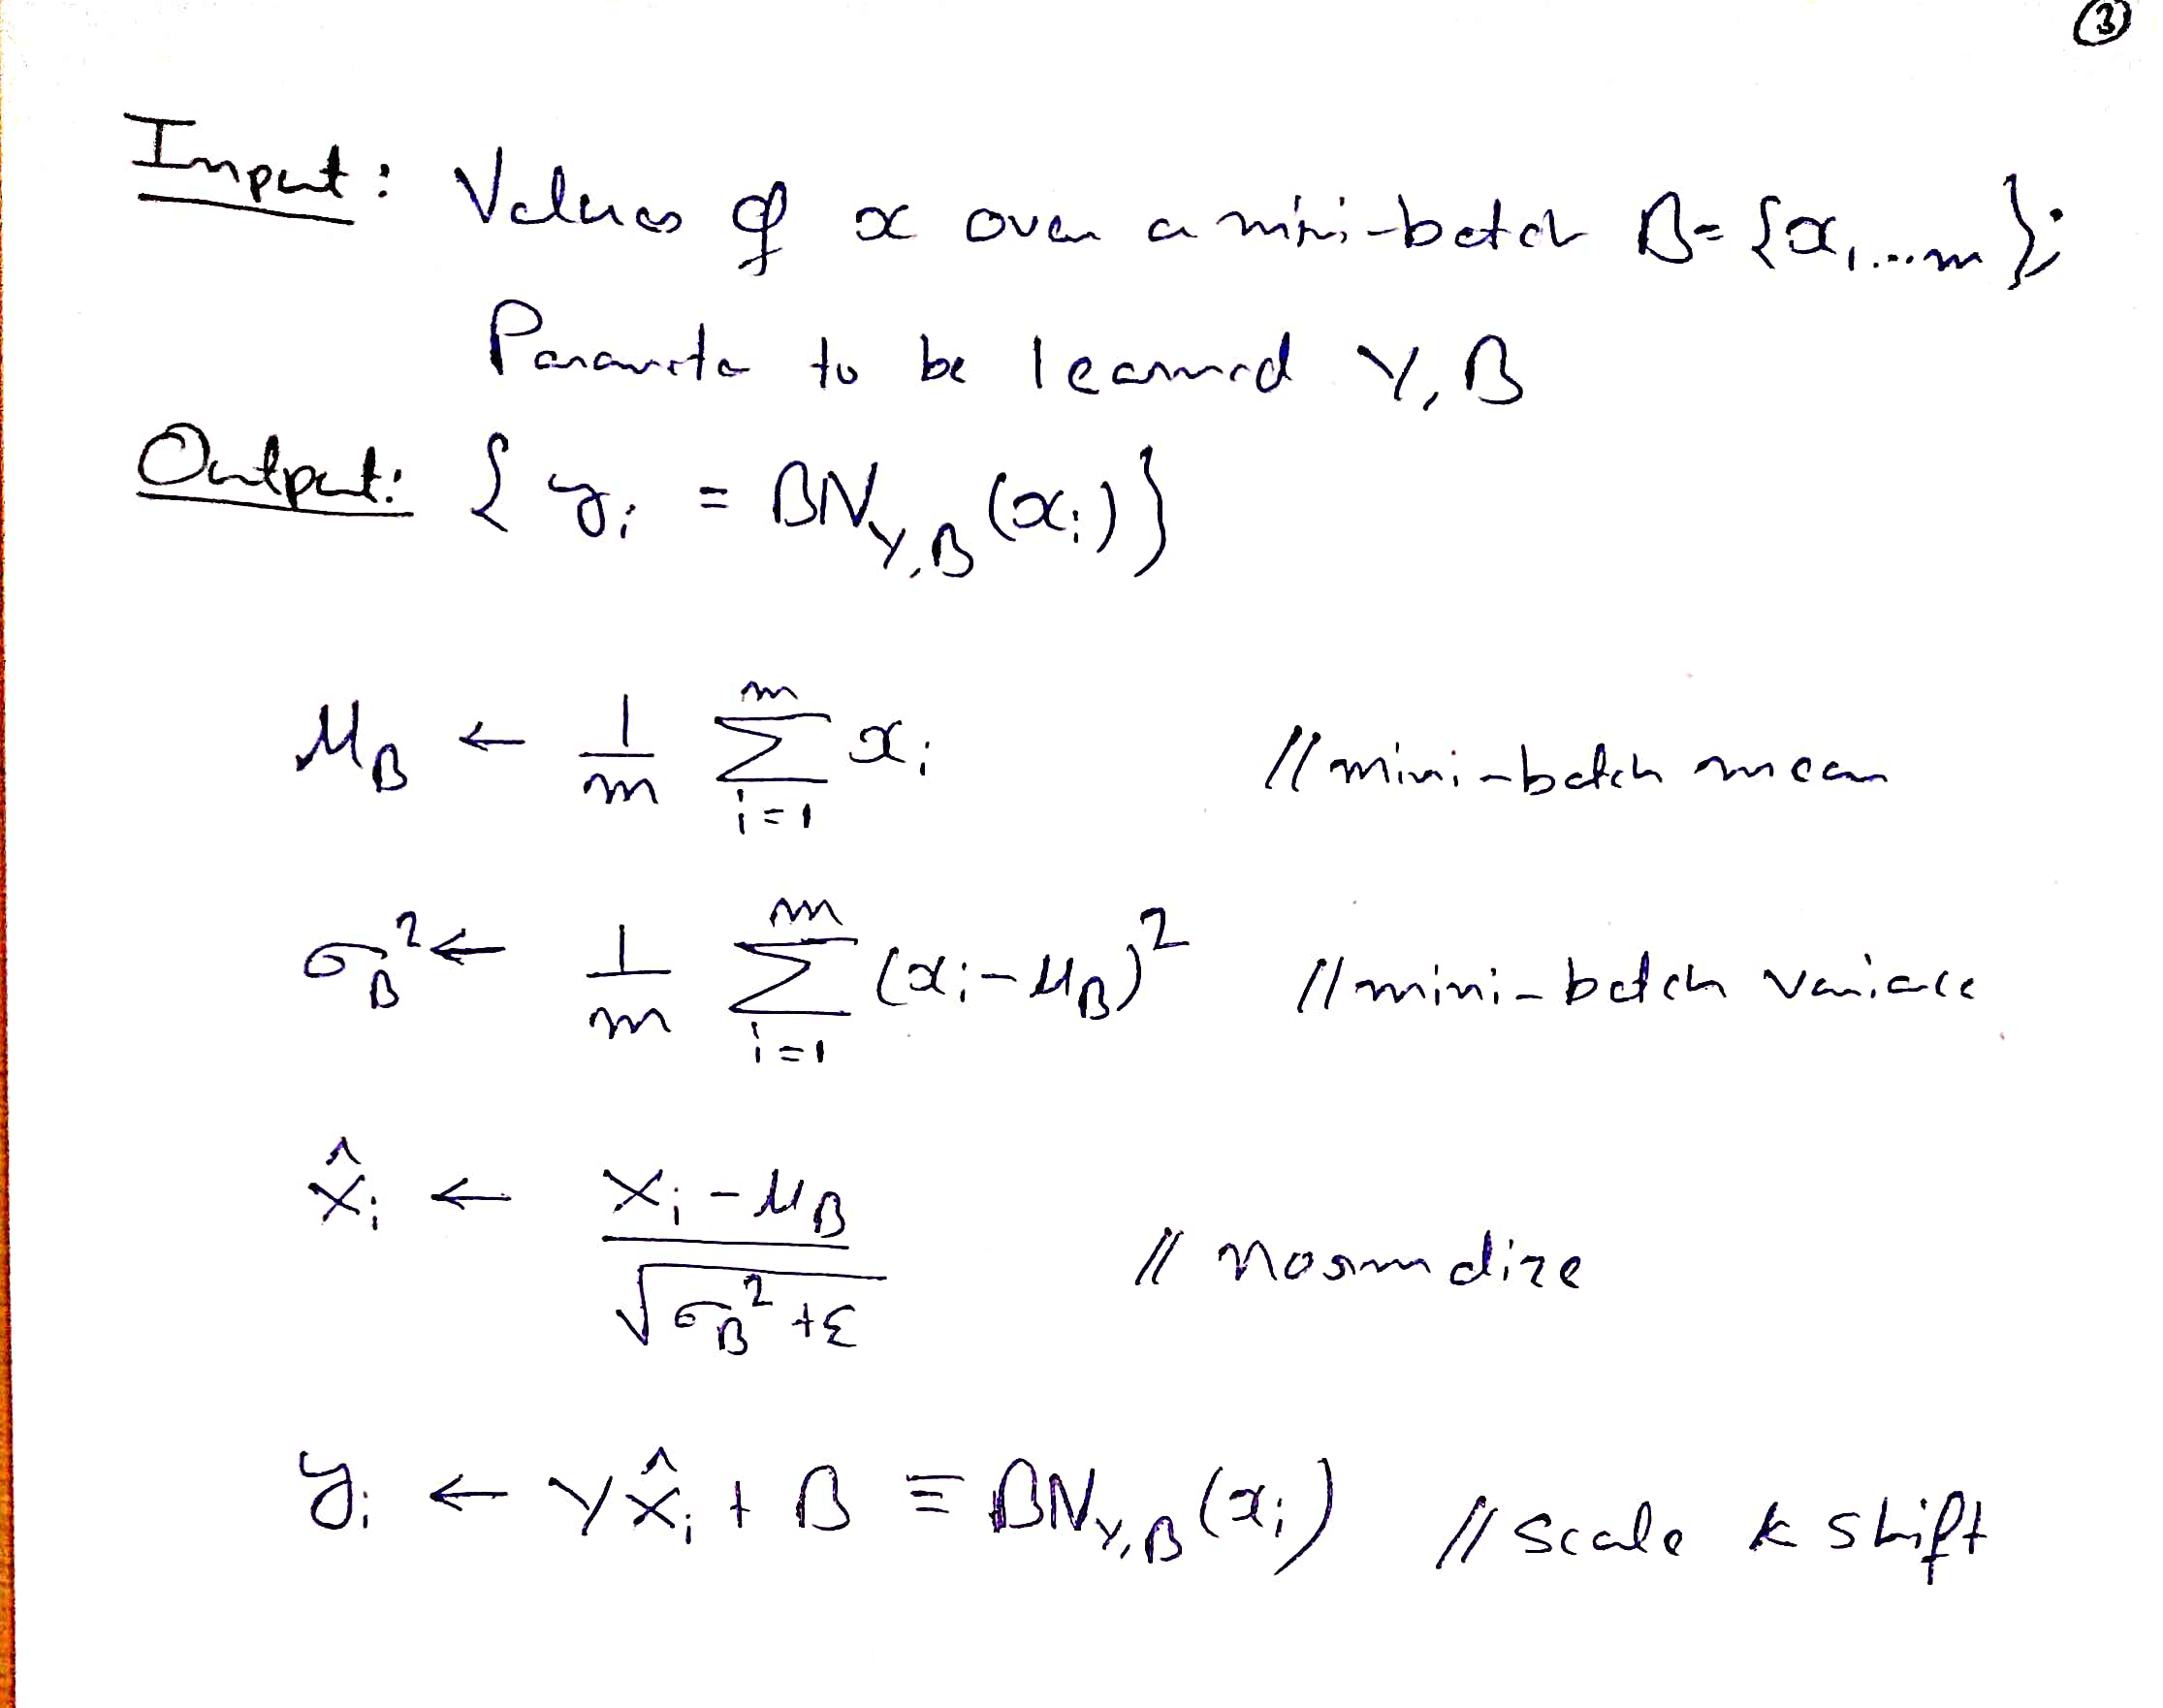 ③
Input: Values of x over a mini-batch B = {x₁...m};
Parameter to be learned γ, β
Output: { yᵢ = BN_γ,β (xᵢ) }
μ_B ← 1/m Σ_{i=1}^{m} xᵢ // mini-batch mean
σ_B² ← 1/m Σ_{i=1}^{m} (xᵢ - μ_B)² // mini-batch variance
x̂ᵢ ← (xᵢ - μ_B) / √(σ_B² + ε) // normalize
yᵢ ← γ x̂ᵢ + β ≡ BN_γ,β (xᵢ) // scale & shift